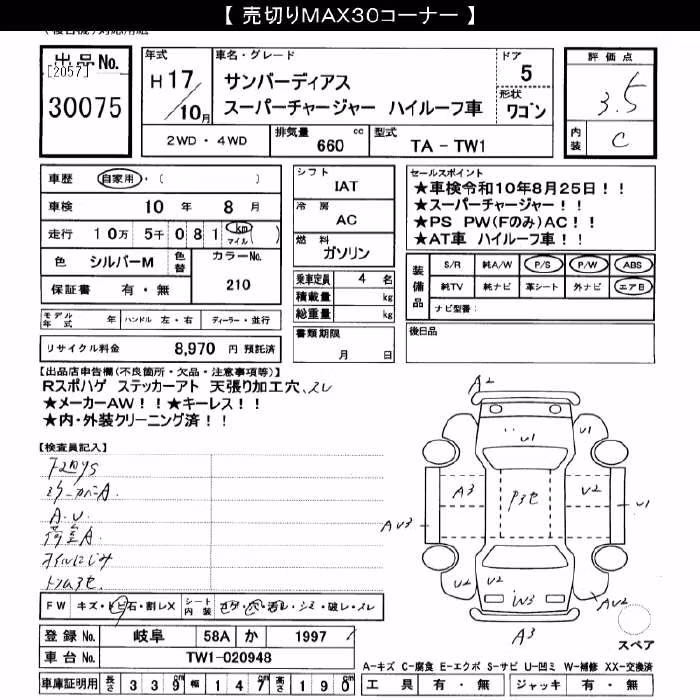 【 売切りMAX30コーナー 】
出品No. 年式 車名・グレード ドア 評価点
[2057] H 17 サンバーディアス 5 3.5
30075 /10月 スーパーチャージャー ハイルーフ車 形状 ワゴン
2WD・4WD 排気量 660 cc 型式 TA - TW1 内装 C
車歴 自家用・( ) シフト IAT セールスポイント
車検 10 年 8 月 冷房 AC ★車検令和10年8月25日！！
走行 10万 5千 081 km マイル ( ) 燃料 ガソリン ★スーパーチャージャー！！
★PS PW(Fのみ)AC！！
★AT車 ハイルーフ車！！
色 シルバーM 色替 カラーNo. 210
保証書 有・無
乗車定員 4 名
積載量 kg
総重量 kg
装備品 S/R 純A/W P/S P/W ABS
純TV 純ナビ 革シート 外ナビ エアB
ナビ型番:
モデル年式 年 ハンドル 左・右 ディーラー・並行
書類期限 月 日
後日品
リサイクル料金 8,970 円 預託済
【出品店申告欄(不良箇所・欠品・注意事項等)】
Rスポハゲ ステッカーアト 天張り加工穴、スレ
★メーカーAW！！★キーレス！！
★内・外装クリーニング済！！
【検査員記入】
ミラーカバーA.
A.U.
荷室A
オイルにじみ
FW キズ・トビ石・割レX シート内装 コゲ・穴・汚レ・シミ・破レ・スレ
A2
U1 U1
A3 U2
U1
A U3
U2 U2
W3
AU2
A3
スペア
登録No. 岐阜 58A か 1997
車台No. TW1-020948
A-キズ C-腐食 E-エクボ S-サビ U-凹ミ W-補修 XX-交換済
車庫証明用 長さ 339 cm 幅 147 cm 高さ 190 cm 工具 有・無 ジャッキ 有・無